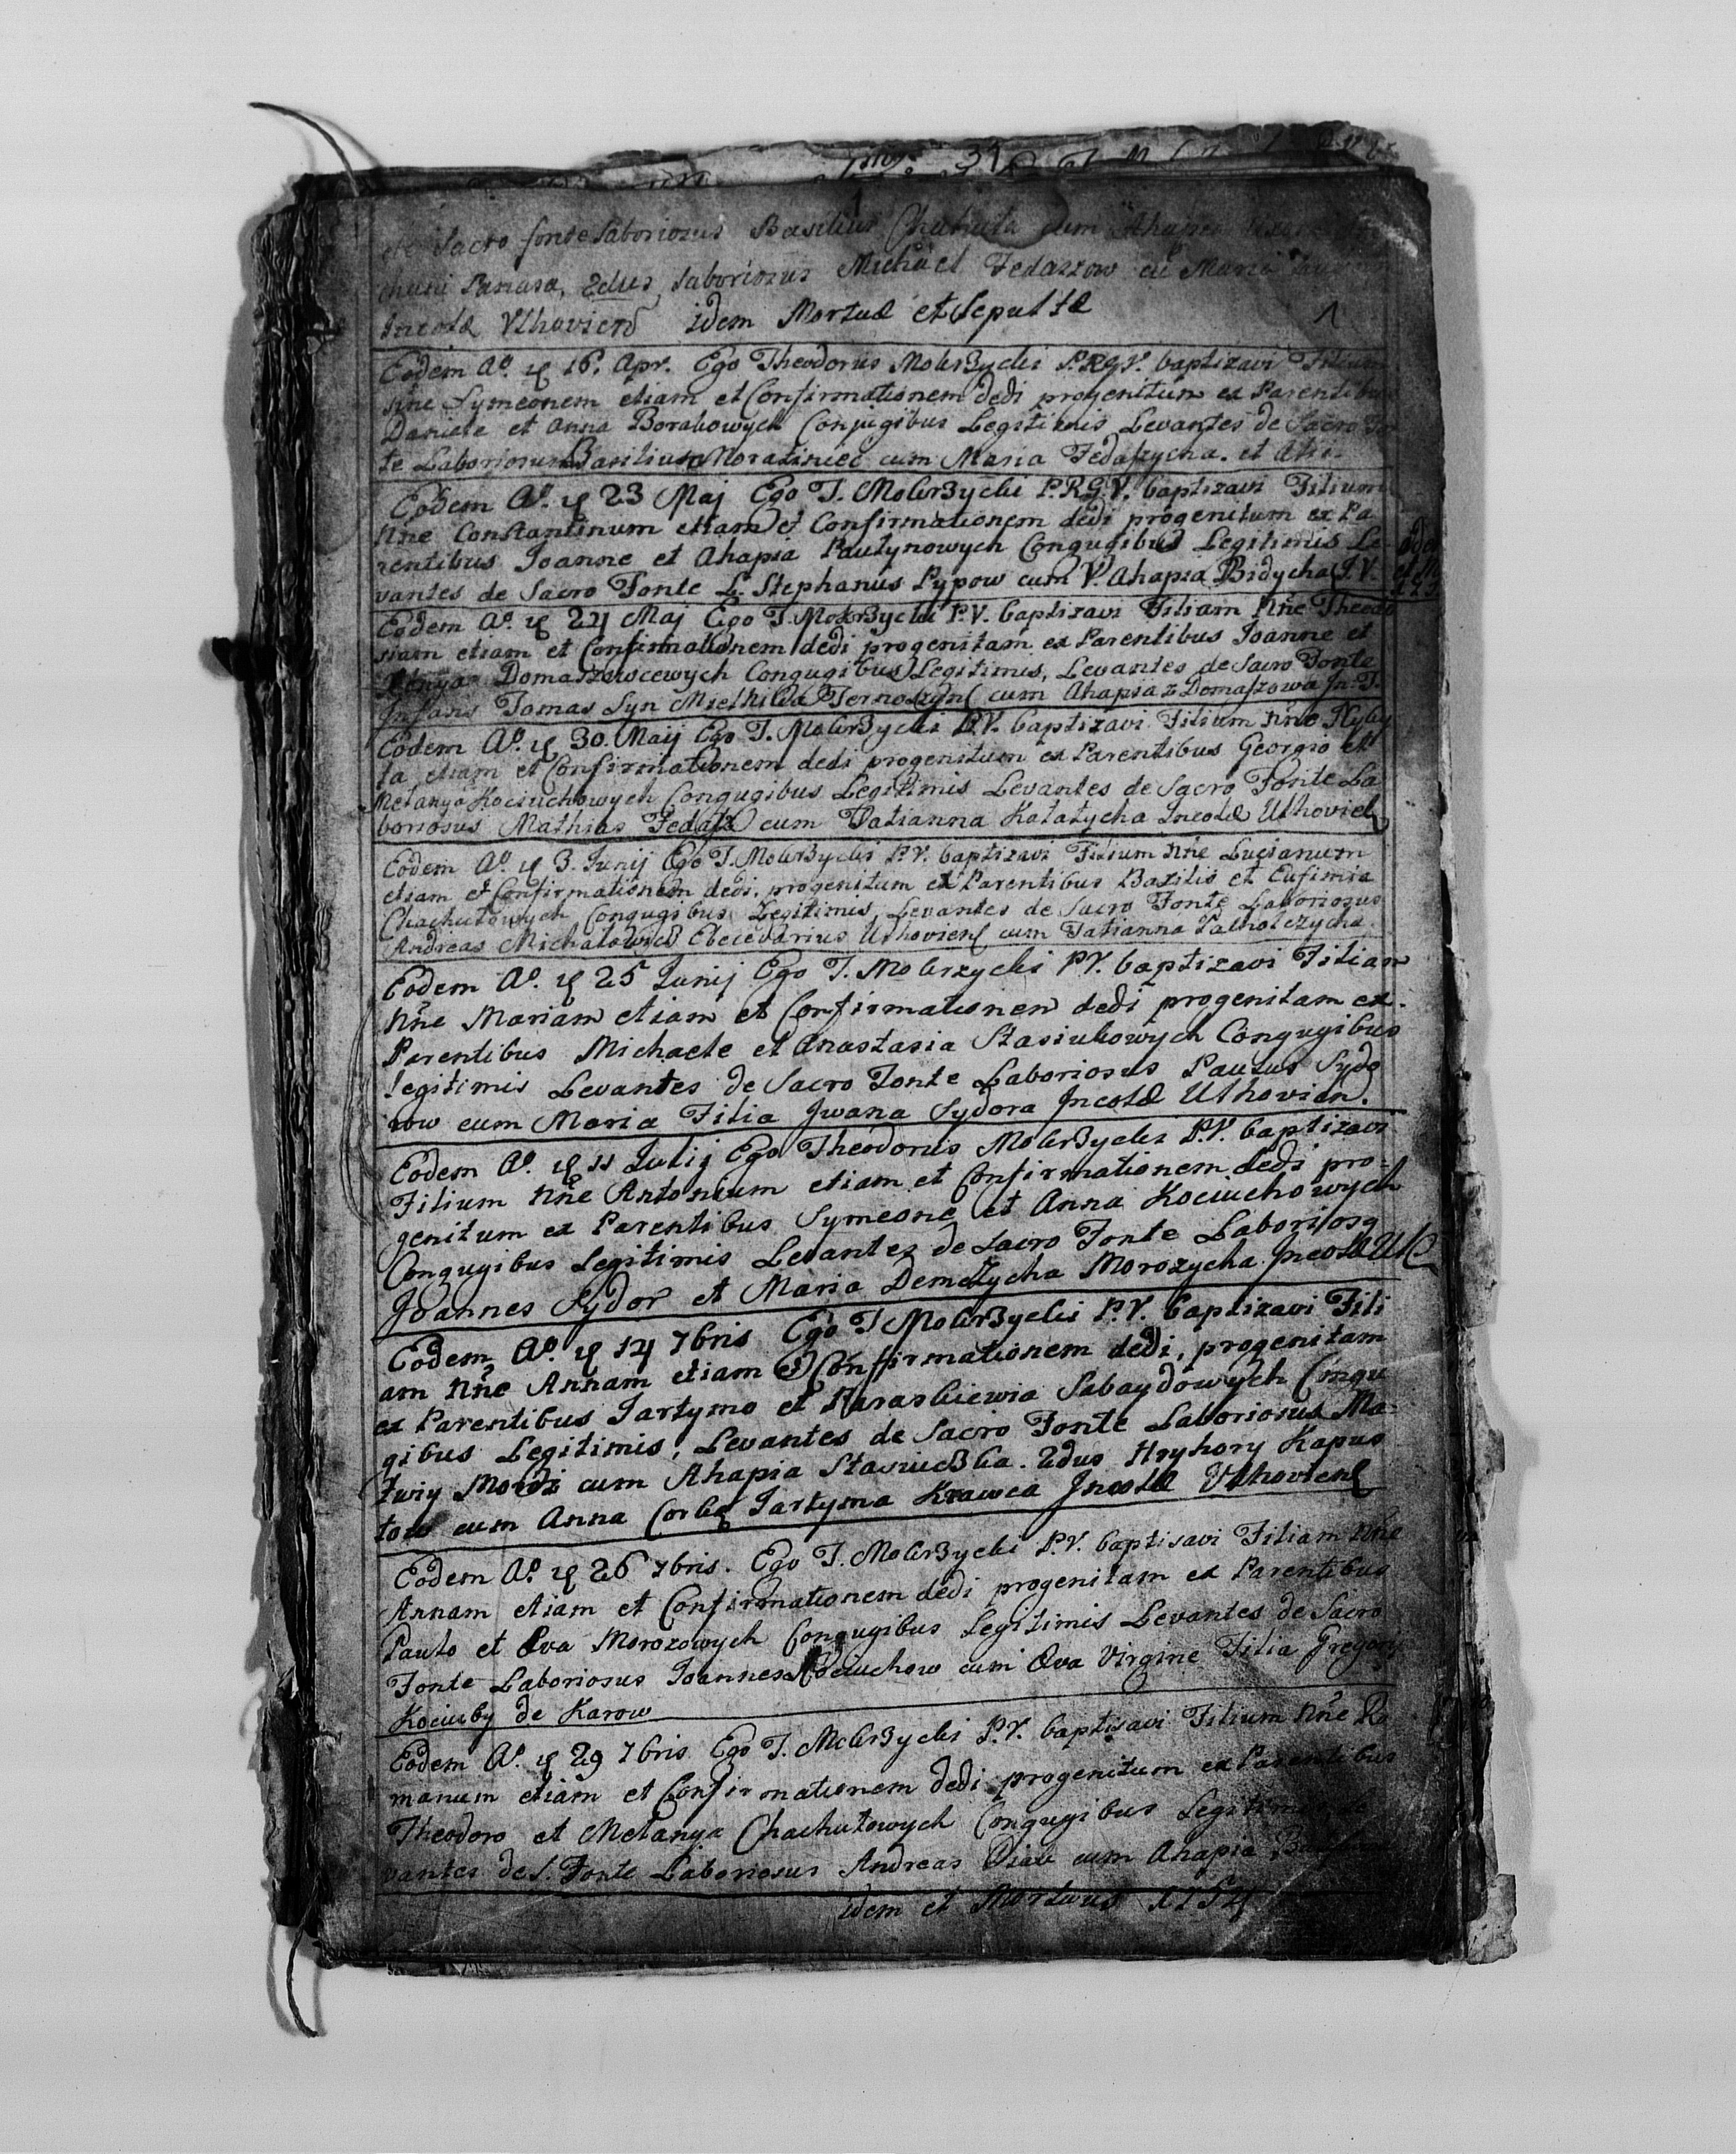 1
de Sacro fonte Laboriosus Basilius Chuchuta cum Ahapia
Panasa, 2dus, Laboriosus Michael Fedaszow cu Maria
Incolæ Uhovien idem Mortuæ et Sepultæ
1
Eodem Ao. 16. Apr. Ego Theodorus Mokrzycki P.R.G.V. baptizavi Filium
nne Symeonem etiam et Confirmationem dedi progenitum ex Parentibus
Daniele et Anna Borakowych Conjugibus Legitimis Levantes de Sacro Fon
te Laboriosum Basilium Moratiniec cum Maria Fedaszycha. et
Eodem Ao. 23 Maj Ego T. Mokrzycki P.R.G.V. baptizavi Filium
Nne Constantinum etiam et Confirmationem dedi progenitum ex Pa
rentibus Joanne et Ahapia Paulynowych Congugibus Legitimis Le
vantes de Sacro Fonte L. Stephanus Pypow cum V. Ahapia Bidycha J.V.
Eodem Ao. 24 Maj Ego T. Mokrzycki P.V. baptizavi Filiam Nne Theodo
siam etiam et Confirmationem dedi progenitam ex Parentibus Joanne et
Domaszowcewych Congugibus Legitimis, Levantes de Sacro Fonte
Infans Tomas Syn Miethilda cum Ahapia z Domaszowa In. T.
Eodem Ao. 30. Maij Ego T. Mokrzycki P.V. baptizavi Filium Nne Kyky
ta etiam et Confirmationem dedi progenitum ex Parentibus Georgio et
Melanya Kociuchowych Congugibus Legitimis Levantes de Sacro Fonte La
boriosus Mathias Fedasz cum Tatianna Katatycha Incolæ Uhovien
Eodem Ao. 3. Junij Ego T. Mokrzycki P.V. baptizavi Filium Nne Lucianum
etiam et Confirmationem dedi. progenitum ex Parentibus Bazilio et Eufimia
Chachutowych Congugibus Legitimis, Levantes de Sacro Fonte Laboriosus
Andreas Michatowicz Ebecedarius Uhovien cum Tatianna
Eodem Ao. 25 Junij Ego T. Mokrzycki P.V. baptizavi Filiam
Nne Mariam etiam et Confirmationem dedi progenitam ex.
Parentibus Michaele et Anastasia Stasiukowych Congugibus
legitimis Levantes de Sacro Fonte Laboriosus Paulus Sydo
row cum Maria Filia Iwana Sydora Incolæ Uhovien.
Eodem Ao. 11 Julij Ego Theodorus Mokrzycki P.V. baptizavi
Filium Nne Antonium etiam et Confirmationem dedi pro-
genitum ex Parentibus Symeone et Anna Kociuchowych
Congugibus Legitimis Levantes de Sacro Fonte Laborios
Joannes Sydor et Maria Demczycha Morozycha Incolæ Uh
Eodem Ao. 14 7bris Ego T Mokrzycki P.V. baptizavi Fili
am Nne Annam etiam et Confirmationem dedi, progenitam
ex Parentibus Jartymo et Paraskiewia Sabaydowych Congu
gibus Legitimis, Levantes de Sacro Fonte Laboriosus Ma-
twiy Moroz cum Ahapia Stasiuczka. 2dus Hryhory Kapus
tow cum Anna Corka Jartyma Krawca Incolæ Uhovien
Eodem Ao. 26 7bris. Ego T. Mokrzycki P.V. baptisavi Filiam Nne
Annam etiam et Confirmationem dedi progenitam ex Parentibus
Paulo et Eva Morozowych Congugibus Legitimis Levantes de Sacro
Fonte Laboriosus Joannes Kociuchow cum Eva Virgine Filia Gregory
Kociuby de Karow
Eodem Ao. 29 7bris Ego T. Mokrzycki P.V. baptisavi Filium Nne Ro
manum etiam et Confirmationem dedi progenitum ex Parentibus
Theodoro et Melanya Chachutowych Congugibus Legitimis
vantes de S. Fonte Laboriosus Andreas Diak cum Ahapia
idem et Mortuus 1754